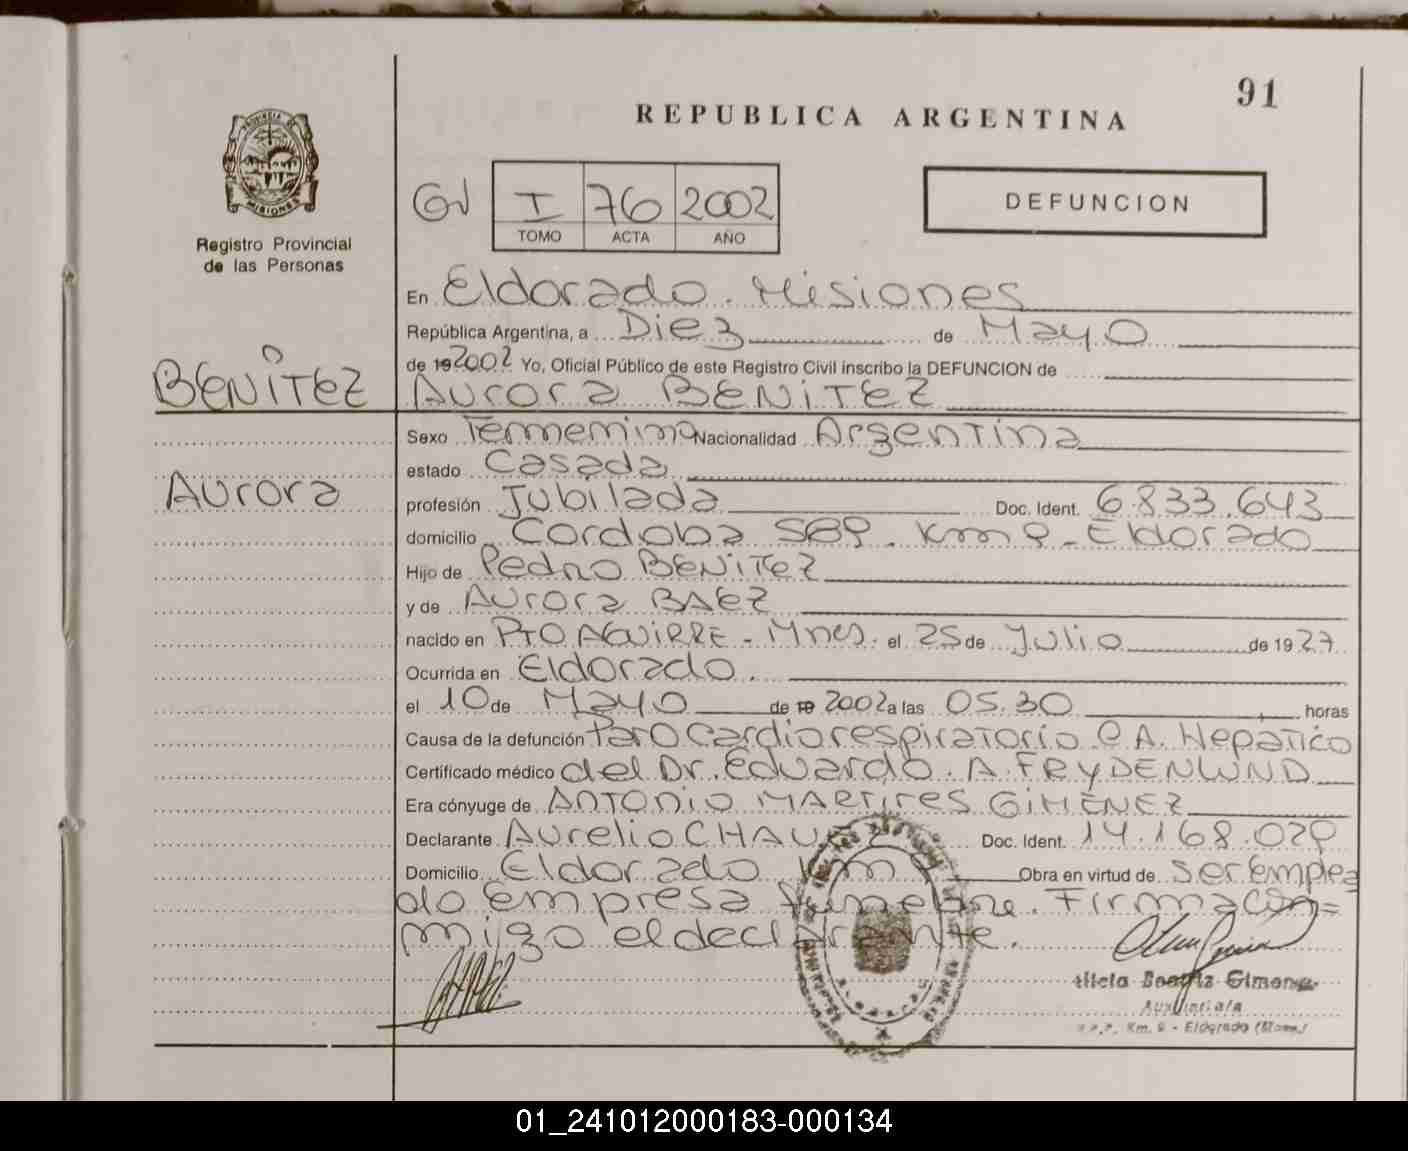 91
REPUBLICA ARGENTINA
PROVINCIA DE
MISIONES
Registro Provincial
de las Personas
I 76 2002
TOMO ACTA AÑO
DEFUNCION
En Eldorado. Misiones
República Argentina, a Diez de Mayo
de 192002 Yo, Oficial Público de este Registro Civil inscribo la DEFUNCION de
BENITEZ
Aurora BENITEZ
Sexo Femenino Nacionalidad Argentina
estado Casada
Aurora
profesión Jubilada Doc. Ident. 6.833.643
domicilio Cordoba 589. Km 9 - Eldorado
Hijo de Pedro BENITEZ
y de Aurora BAEZ
nacido en PTO AGUIRRE - Mnes. el 25 de Julio de 1927
Ocurrida en Eldorado.
el 10 de Mayo de 19 2002 a las 05.30 horas
Causa de la defunción Paro Cardiorespiratorio. CA. Hepatico
Certificado médico del Dr. Eduardo. A. FRYDENLUND
Era cónyuge de ANTONIO MARTIRES GIMENEZ
Declarante Aurelio CHAVEZ Doc. Ident. 14.168.029
Domicilio Eldorado Km 9 Obra en virtud de ser emplea
do empresa funebre. Firma con=
migo el declarante.
Beatriz Gimenez
Auxiliar
Km. 9 - Eldorado
01_241012000183-000134